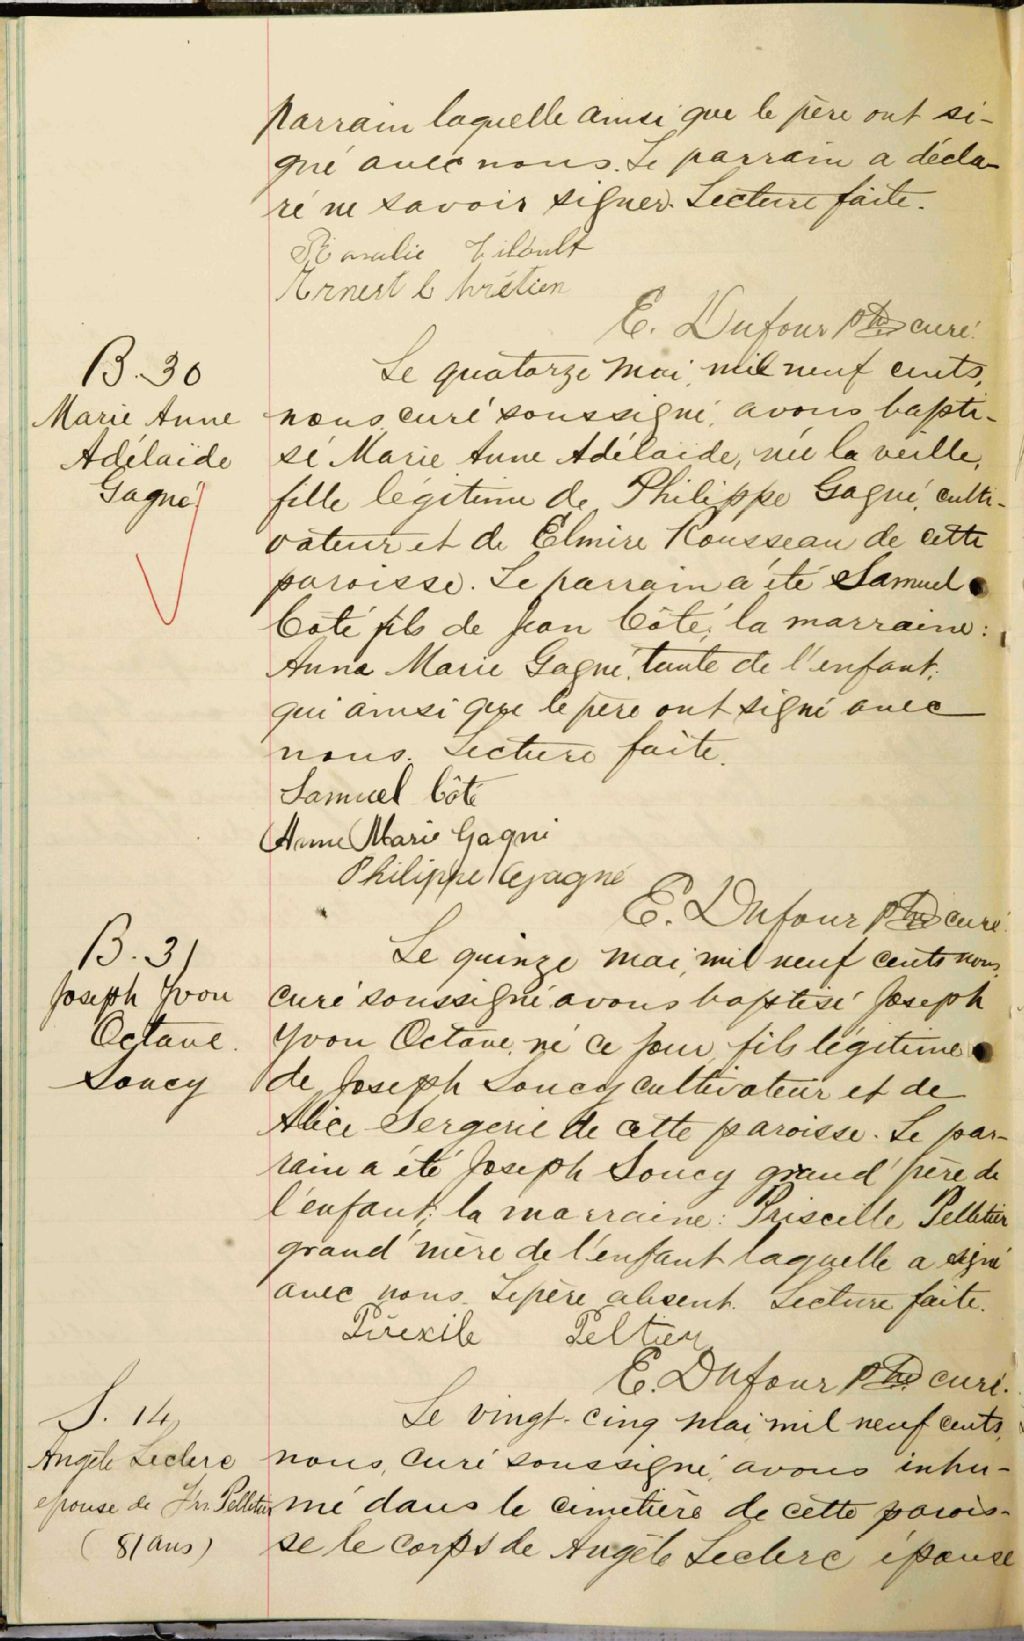 parrain laquelle ainsi que le père ont si-
gné avec nous. Le parrain a décla-
ré ne savoir signer. Lecture faite.
Rosalie Tibault
Ernest Chrétien
E. Dufour Ptre curé.
B. 30
Marie Anne
Adélaïde
Gagné
Le quatorze mai, mil neuf cents,
nous, curé soussigné, avons bapti-
sé Marie Anne Adélaïde, née la veille,
fille légitime de Philippe Gagné, culti-
vateur et de Elmire Rousseau de cette
paroisse. Le parrain a été Samuel
Côté fils de Jean Côté; la marraine:
Anna Marie Gagné, tante de l'enfant;
qui ainsi que le père ont signé avec
nous. Lecture faite.
Samuel Côté
Anne Marie Gagné
Philippe Gagné
E. Dufour Ptre curé.
B. 31
Joseph Yvon
Octave
Soucy
Le quinze mai, mil neuf cents nous,
curé soussigné avons baptisé Joseph
Yvon Octave, né ce jour, fils légitime
de Joseph Soucy cultivateur et de
Alice Sergerie de cette paroisse. Le par-
rain a été Joseph Soucy grand'père de
l'enfant; la marraine: Priscille Pelletier
grand'mère de l'enfant laquelle a signé
avec nous. Le père absent. Lecture faite.
Peltier
E. Dufour Ptre curé.
S. 14
Angèle Leclerc
épouse de Frs. Pelletier
(81 ans)
Le vingt-cinq mai mil neuf cents,
nous, curé soussigné, avons inhu-
mé dans le cimetière de cette parois-
se le corps de Angèle Leclerc épouse